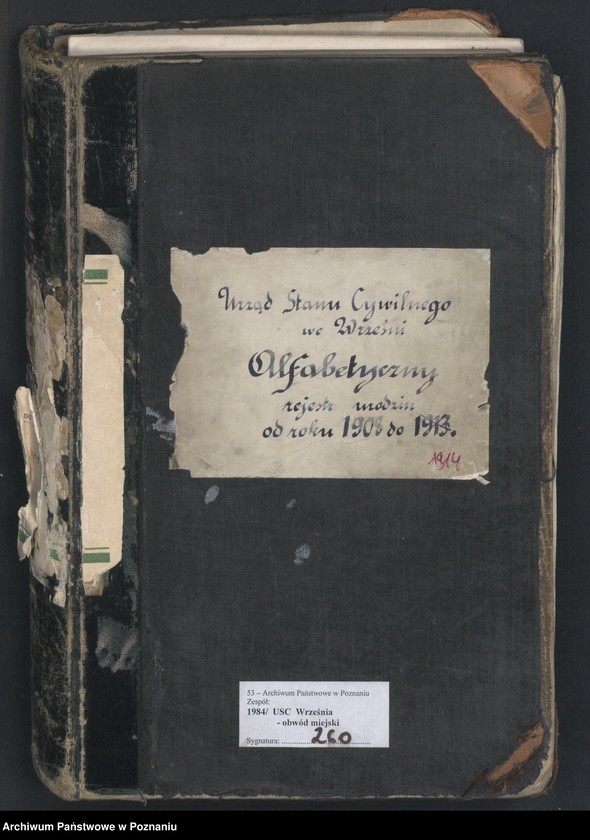 Urząd Stanu Cywilnego
we Wrześni
Alfabetyczny
rejestr urodzin
od roku 1908 do 1913.
1914
53 – Archiwum Państwowe w Poznaniu
Zespół:
1984/ USC Września
- obwód miejski
Sygnatura: ........260........
Archiwum Państwowe w Poznaniu